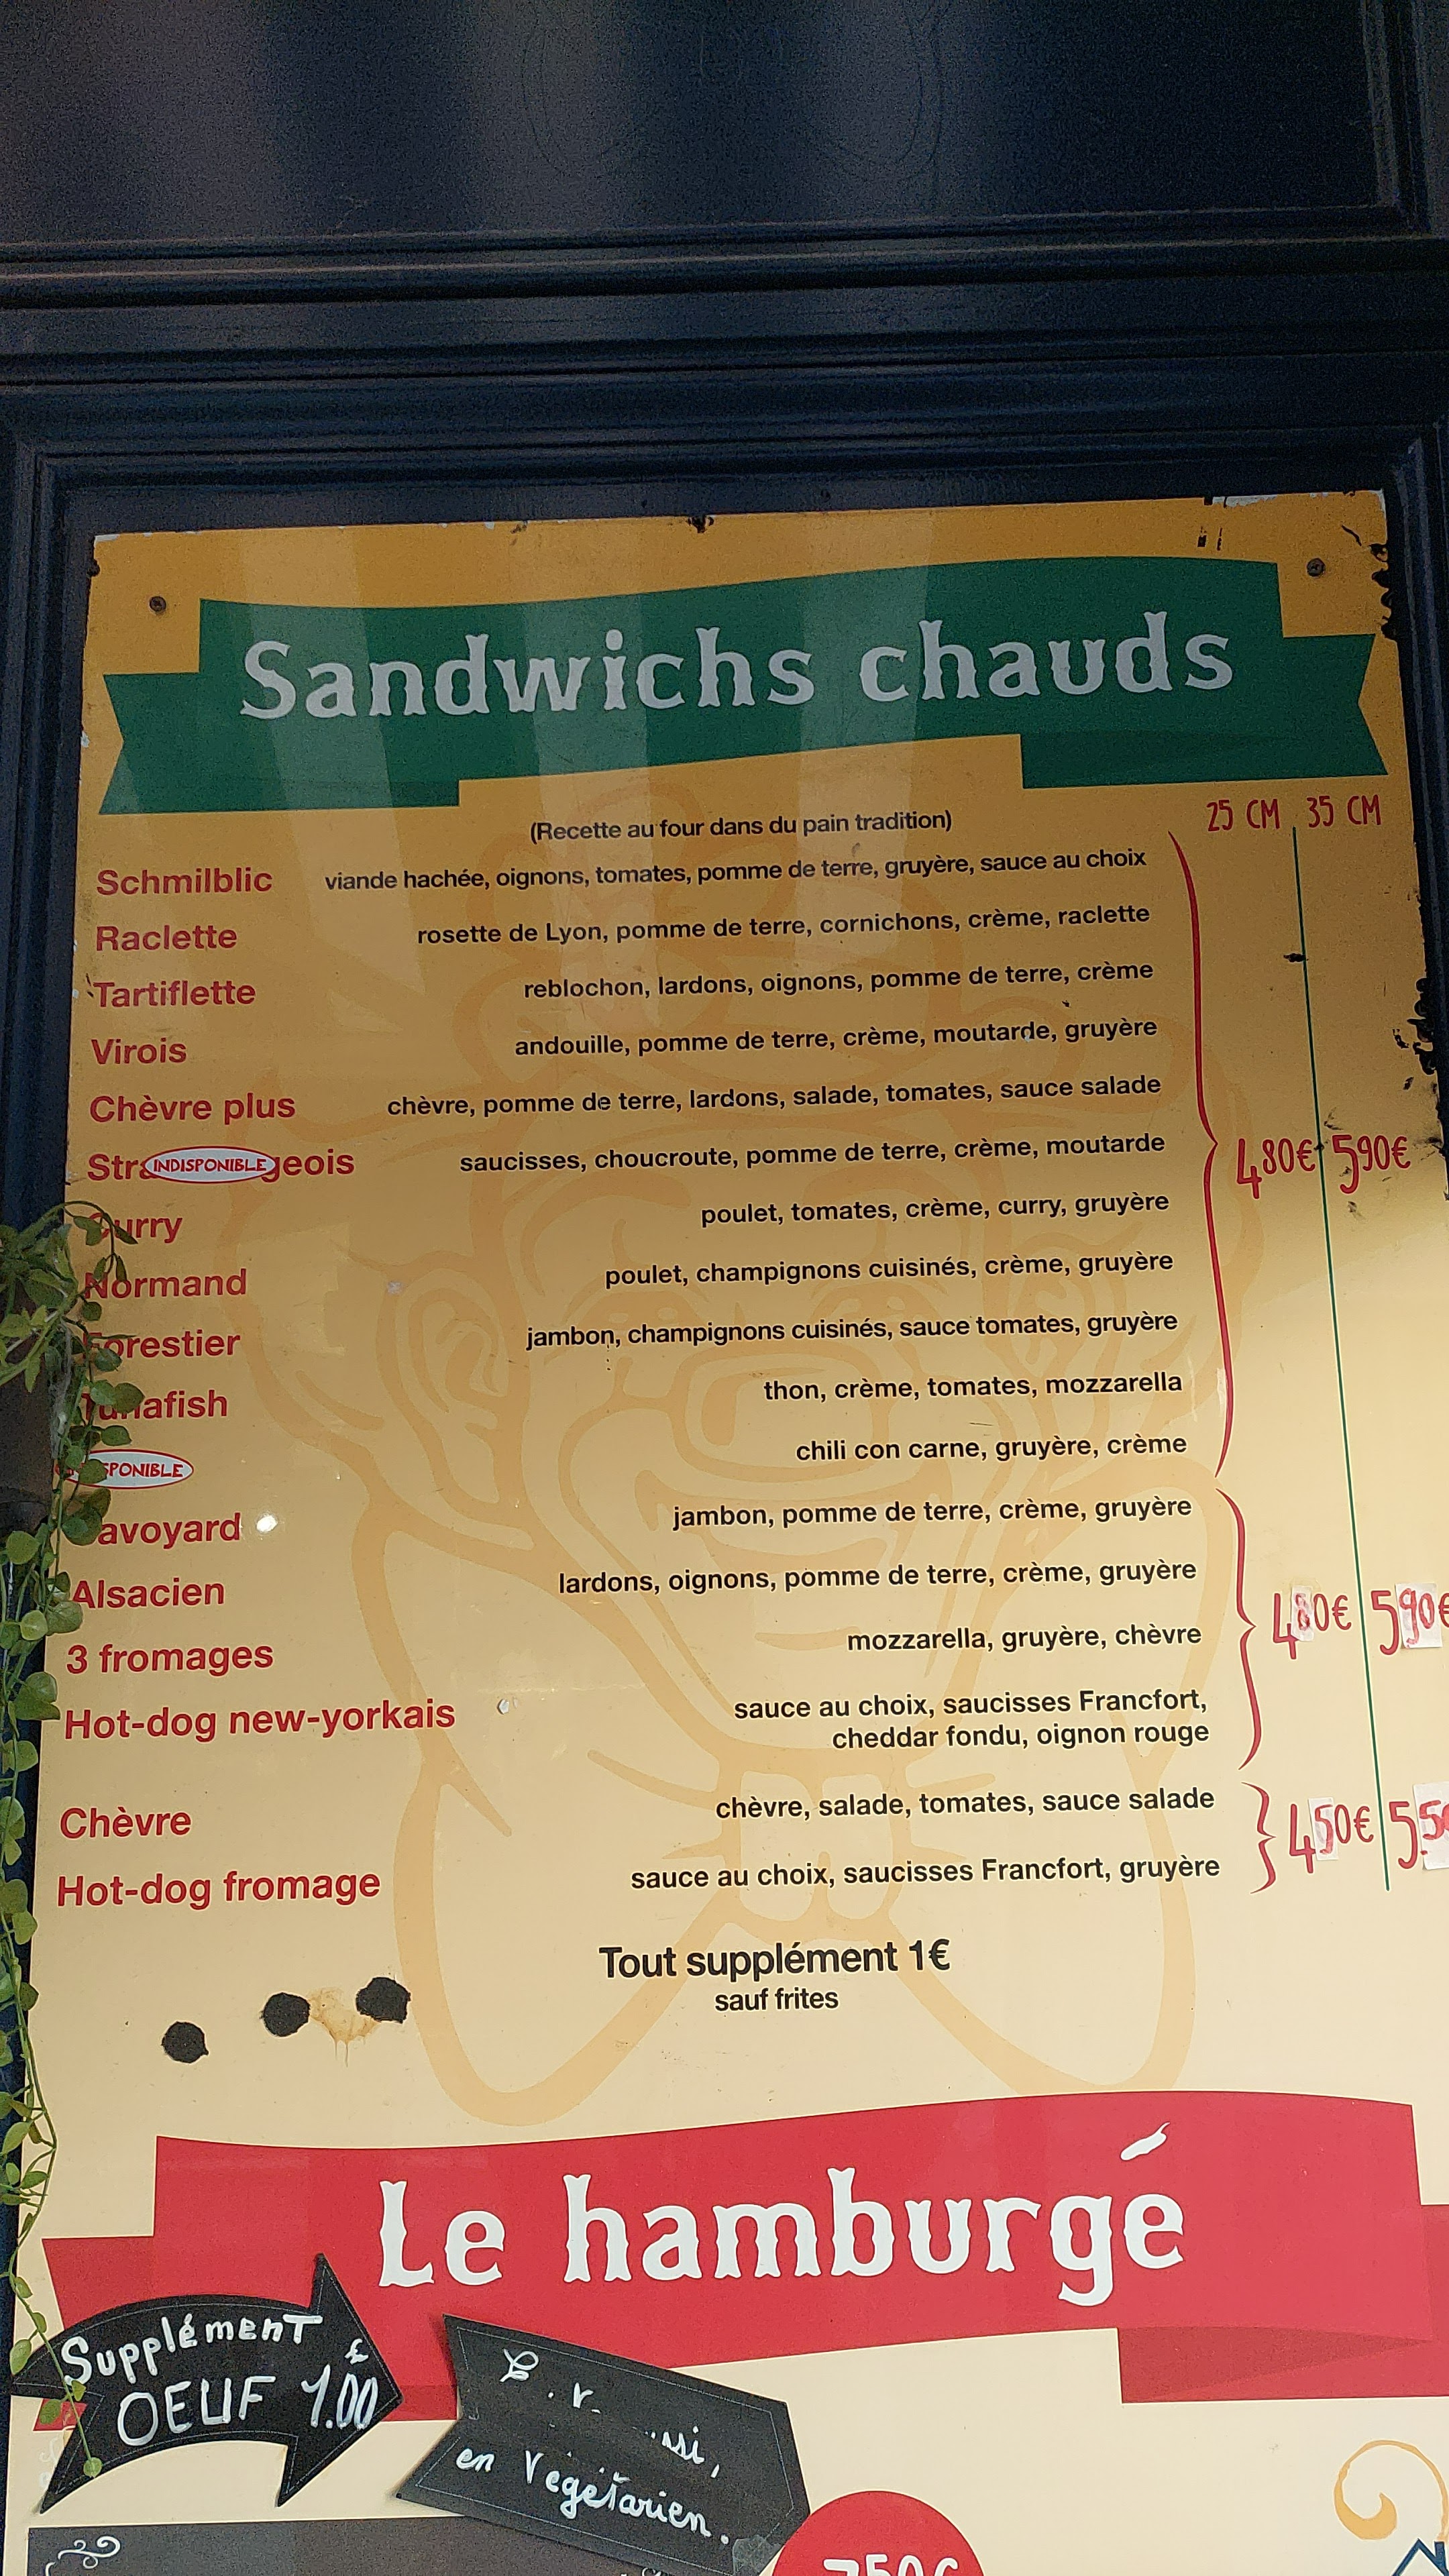 Sandwichs chauds
25 CM 35 CM
(Recette au four dans du pain tradition)
Schmilblic viande hachée, oignons, tomates, pomme de terre, gruyère, sauce au choix
Raclette rosette de Lyon, pomme de terre, cornichons, crème, raclette
Tartiflette reblochon, lardons, oignons, pomme de terre, crème
Virois andouille, pomme de terre, crème, moutarde, gruyère
Chèvre plus chèvre, pomme de terre, lardons, salade, tomates, sauce salade
INDISPONIBLE saucisses, choucroute, pomme de terre, crème, moutarde
480€ 590€
Curry poulet, tomates, crème, curry, gruyère
Normand poulet, champignons cuisinés, crème, gruyère
Forestier jambon, champignons cuisinés, sauce tomates, gruyère
Tunafish thon, crème, tomates, mozzarella
chili con carne, gruyère, crème
Savoyard jambon, pomme de terre, crème, gruyère
Alsacien lardons, oignons, pomme de terre, crème, gruyère
480€ 590€
3 fromages mozzarella, gruyère, chèvre
Hot-dog new-yorkais sauce au choix, saucisses Francfort,
cheddar fondu, oignon rouge
Chèvre chèvre, salade, tomates, sauce salade
450€
Hot-dog fromage sauce au choix, saucisses Francfort, gruyère
Tout supplément 1€
sauf frites
Le hamburgé
Supplément
OEUF 1.00 €
en Végétarien.